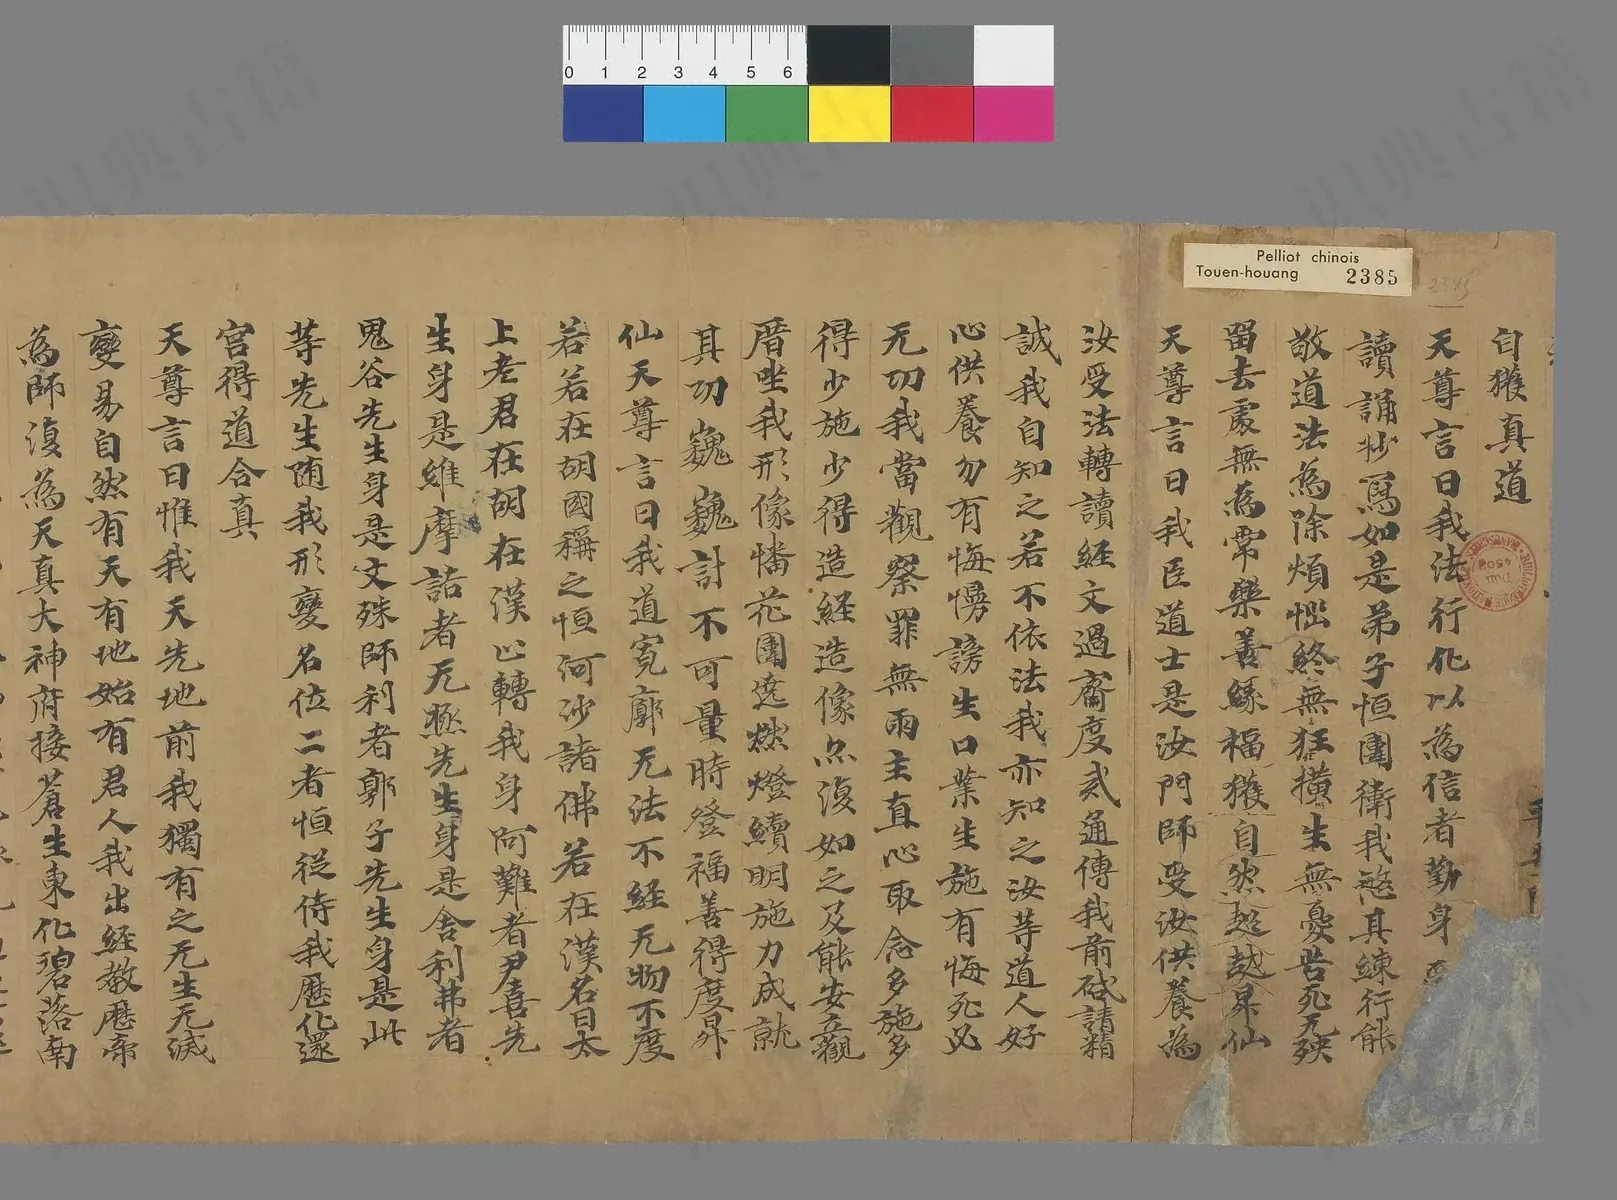 0 1 2 3 4 5 6
Pelliot chinois
Touen-houang 2385
2385
自獲真道
天尊言曰我法行化以為信者勤身
讀誦抄寫如是弟子恒圍衛我愍其練行能
敬道法為除煩惱終無狂橫生無憂苦死无殃
留去處無為常樂善緣福獲自然超越昇仙
天尊言曰我臣道士是汝門師受汝供養為
汝受法轉讀經文過齋度貳通傳我前咸請精
誠我自知之若不依法我亦知之汝等道人好
心供養勿有悔慢謗生口業生施有悔死必
无功我當觀察罪無雨主直心取念多施多
得少施少得造經造像亦復如之及能安立觀
厝坐我形像幡花圍遶燃燈續明施力成就
其功巍巍計不可量時登福善得度昇
仙天尊言曰我道寬廓无法不經无物不度
若若在胡國稱之恒河沙諸佛若在漢名曰太
上老君在胡在漢止轉我身阿難者尹喜先
生身是維摩詰者无極先生身是舍利弗者
鬼谷先生身是文殊師利者郭子先生身是此
等先生随我形變名位二者恒從侍我歷化還
宮得道合真
天尊言曰惟我天先地前我獨有之无生无滅
變易自然有天有地始有君人我出經教歷帝
為師復為天真大神府接蒼生東化碧落南